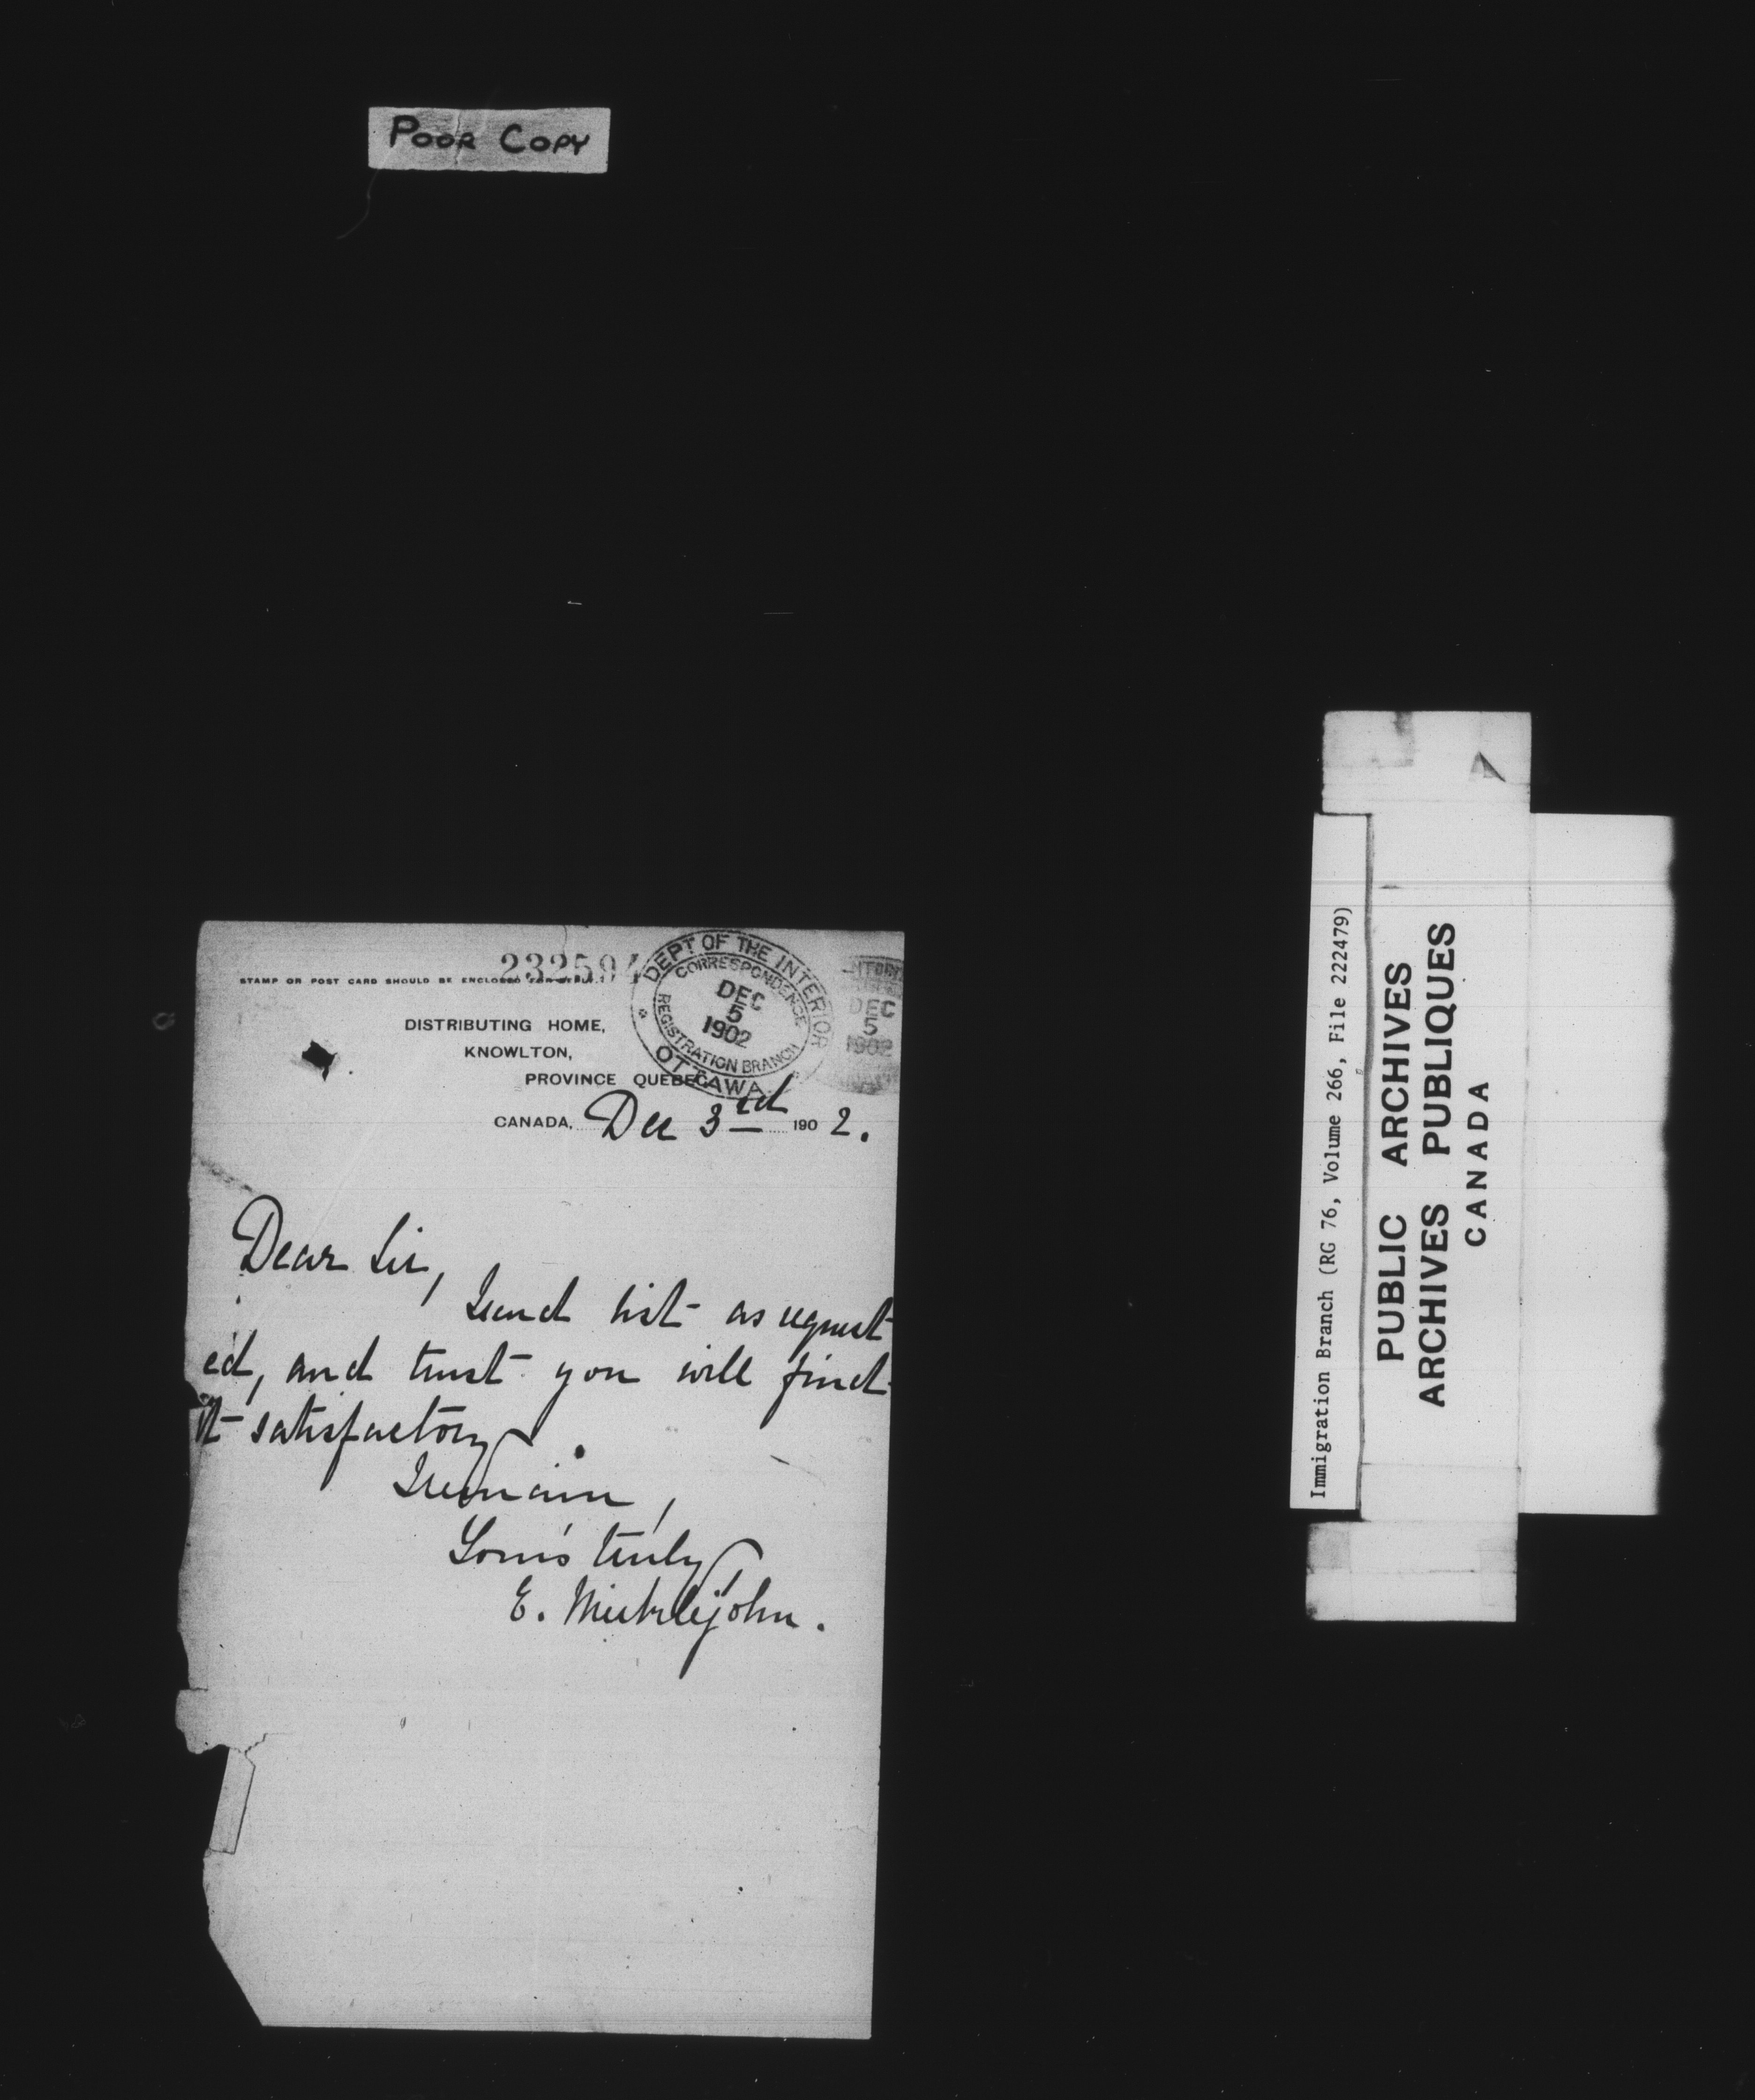 POOR COPY
232594
STAMP OR POST CARD SHOULD BE ENCLOSED FOR REPLY.
DEPT OF THE INTERIOR
CORRESPONDENCE
DEC
5
1902
REGISTRATION BRANCH
OTTAWA
DEC
5
1902
DISTRIBUTING HOME,
KNOWLTON,
PROVINCE QUEBEC
CANADA, Dec 3rd 1902.
Dear Sir,
I send list as request
ed, and trust you will find
it satisfactory.
I remain,
Yours truly
E. Meiklejohn.
Immigration Branch (RG 76, Volume 266, File 222479)
PUBLIC ARCHIVES
ARCHIVES PUBLIQUES
CANADA